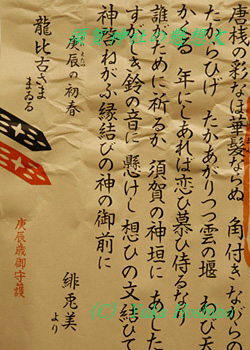 唐桟の彩なは華髪ならぬ 角付き、ながらの
たかあがりつつ雲の堰 わび天
かくる 年にしあれば恋ひ慕ひ侍る
誰がために祈るか 須賀の神垣に あまた
すがしき鈴の音に 懸けし想ひの文結びて
神にねがふ縁結びの神の御前に
緋兎美
より
庚辰の初春
龍比古さま
まゐる
庚辰歳御守護
(C)